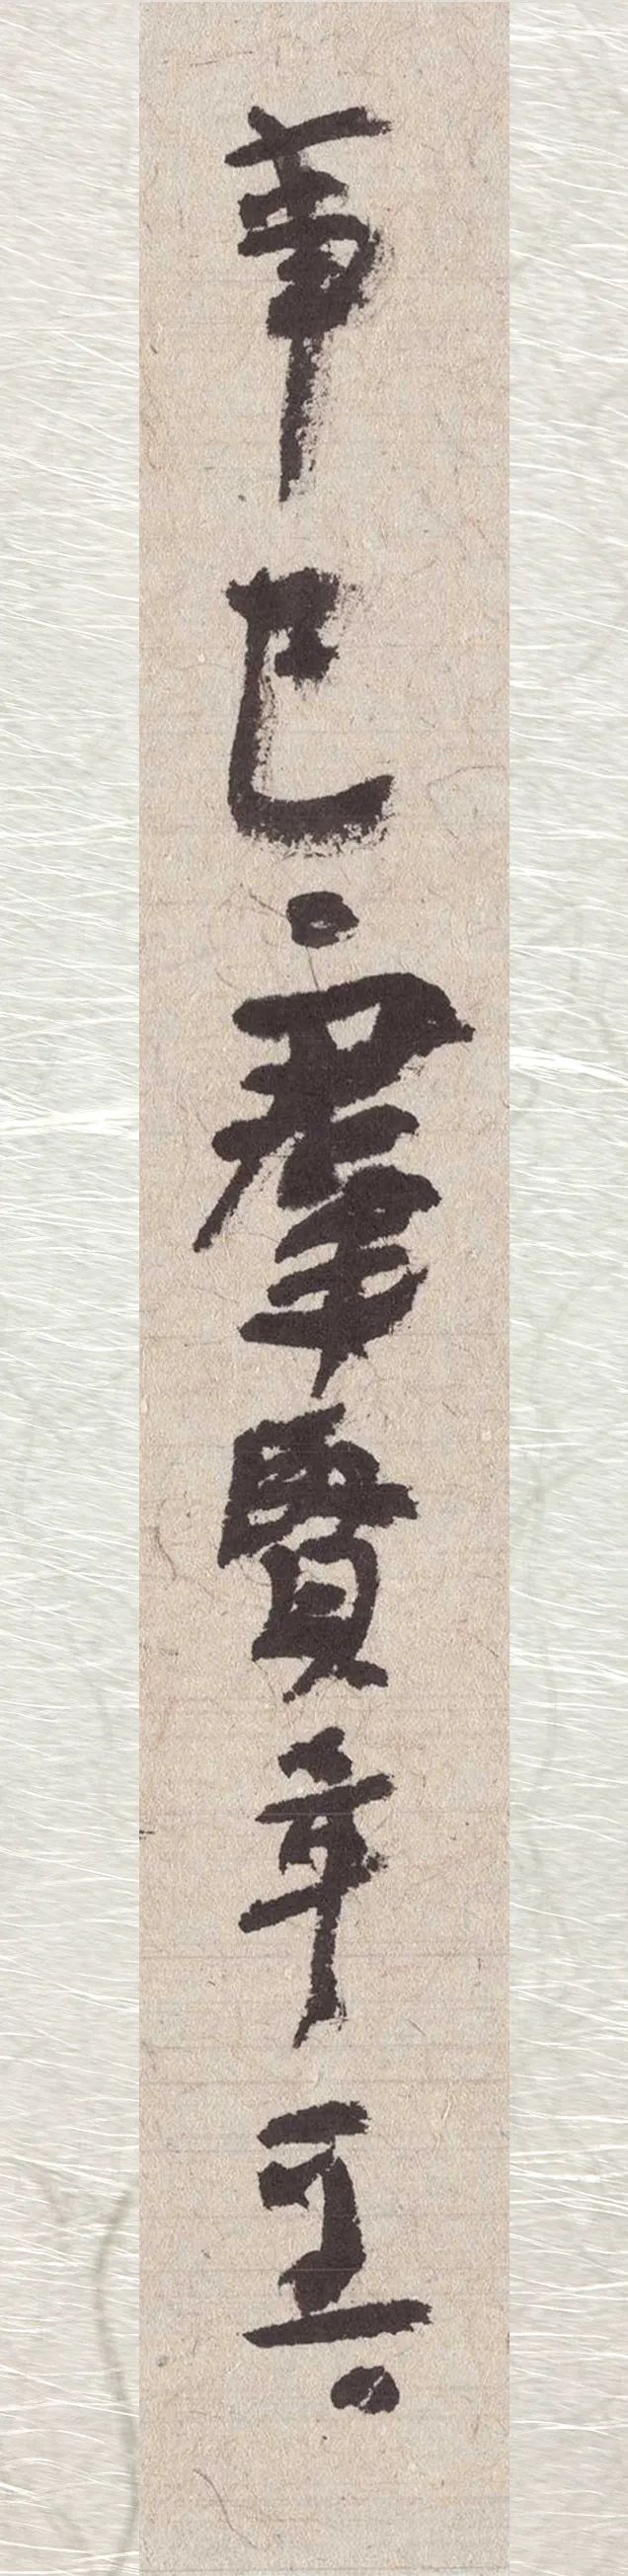 事已。羣賢畢至。